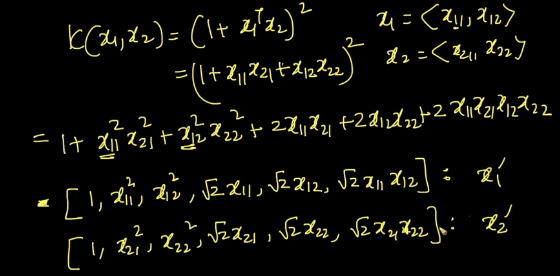 K(x₁,x₂) = (1 + x₁ᵀx₂)²   x₁ = <x₁₁, x₁₂>
= (1 + x₁₁x₂₁ + x₁₂x₂₂)²   x₂ = <x₂₁, x₂₂>
= 1 + x₁₁²x₂₁² + x₁₂²x₂₂² + 2x₁₁x₂₁ + 2x₁₂x₂₂ + 2x₁₁x₂₁x₁₂x₂₂
= [1, x₁₁², x₁₂², √2x₁₁, √2x₁₂, √2x₁₁x₁₂] : x₁′
[1, x₂₁², x₂₂², √2x₂₁, √2x₂₂, √2x₂₁x₂₂] : x₂′